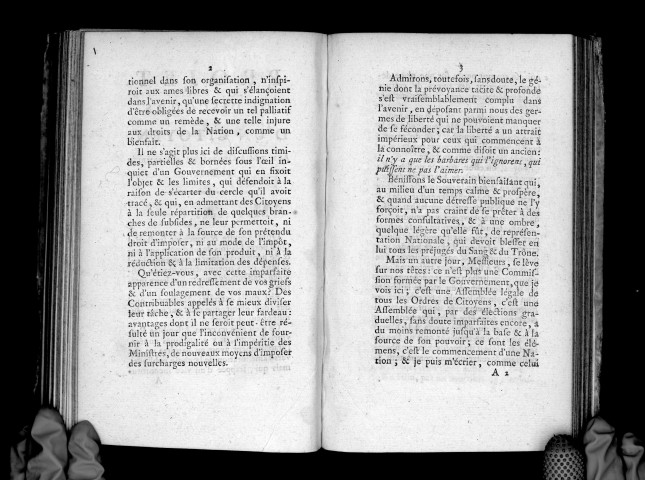 2
tionnel dans son organisation, n'inspi-
roit aux ames libres & qui s'élançoient
dans l'avenir, qu'une secrette indignation
d'être obligées de recevoir un tel palliatif
comme un remède, & une telle injure
aux droits de la Nation, comme un
bienfait.
Il ne s'agit plus ici de discussions timi-
des, partielles & bornées sous l'œil in-
quiet d'un Gouvernement qui en fixoit
l'objet & les limites, qui défendoit à la
raison de s'écarter du cercle qu'il avoit
tracé, & qui, en admettant des Citoyens
à la seule répartition de quelques bran-
ches de subsides, ne leur permettoit, ni
de remonter à la source de son prétendu
droit d'imposer, ni au mode de l'impôt,
ni à l'application de son produit, ni à la
réduction & à la limitation des dépenses.
Qu'étiez-vous, avec cette imparfaite
apparence d'un redressement de vos griefs
& d'un soulagement de vos maux? Des
Contribuables appelés à se mieux diviser
leur tâche, & à se partager leur fardeau:
avantages dont il ne seroit peut-être ré-
sulté un jour que l'inconvénient de four-
nir à la prodigalité ou à l'impéritie des
Ministres, de nouveaux moyens d'imposer
des surcharges nouvelles.
3
Admirons, toutefois, sans doute, le gé-
nie dont la prévoyance tacite & profonde
s'est vraisemblablement complu dans
l'avenir, en déposant parmi nous des ger-
mes de liberté qui ne pouvoient manquer
de se féconder; car la liberté a un attrait
impérieux pour ceux qui commencent à
la connoître, & comme disoit un ancien:
il n'y a que les barbares qui l'ignorent, qui
puissent ne pas l'aimer.
Bénissons le Souverain bienfaisant qui,
au milieu d'un temps calme & prospère,
& quand aucune détresse publique ne l'y
forçoit, n'a pas craint de se prêter à des
formes consultatives, & à une ombre,
quelque légère qu'elle fût, de représen-
tation Nationale, qui devoit blesser en
lui tous les préjugés du Sang & du Trône.
Mais un autre jour, Messieurs, se lève
sur nos têtes: ce n'est plus une Commis-
sion formée par le Gouvernement, que je
vois ici; c'est une Assemblée légale de
tous les Ordres de Citoyens, c'est une
Assemblée qui, par des élections gra-
duelles, sans doute imparfaites encore, a
du moins remonté jusqu'à la base & à la
source de son pouvoir; ce sont les élé-
mens, c'est le commencement d'une Na-
tion; & je puis m'écrier, comme celui
A 2